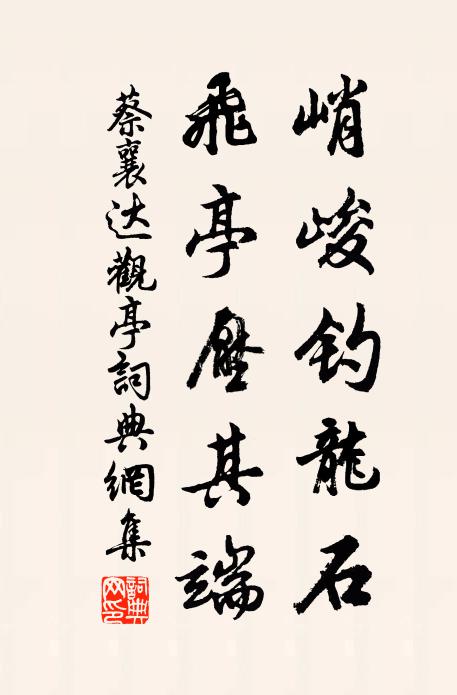 峭峻钓龍石
飛亭壓其端
蔡襄达觀亭詞典網集
詞典网印